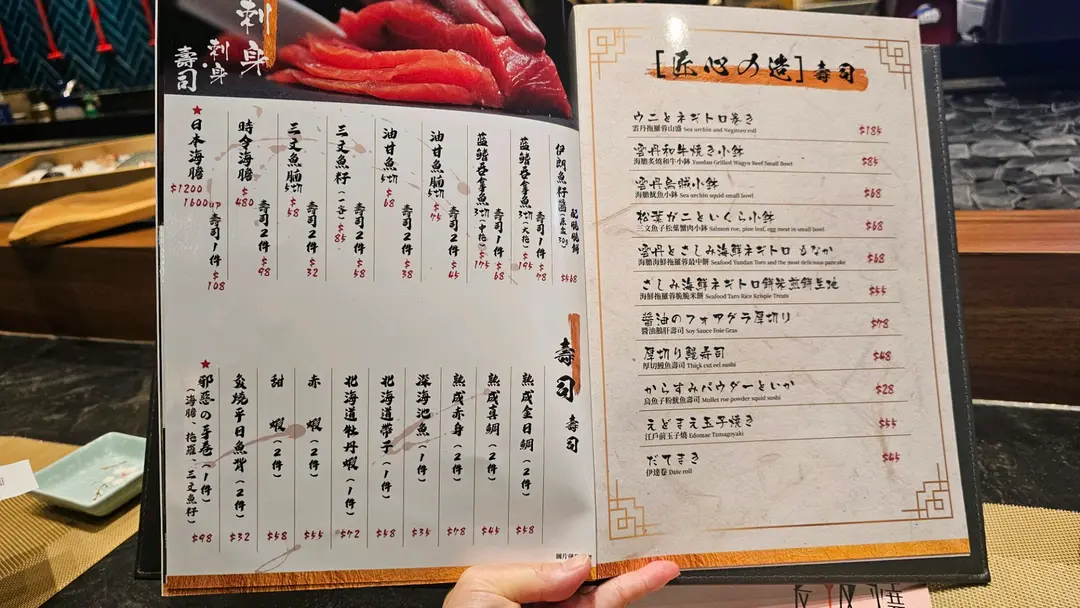 刺身
刺身
壽司
伊朗魚籽醬(原盒30g)
配燒燒餅
$568
藍鰭吞拿魚3切(大拖)
$195
壽司1件
$78
藍鰭吞拿魚3切(中拖)
$175
壽司1件
$68
油甘魚腩5切
$75
壽司2件
$45
油甘魚5切
$68
壽司2件
$38
三文魚籽(一客)
$85
壽司2件
$58
三文魚腩5切
$58
壽司2件
$32
時令海膽
$480
壽司2件
$98
★日本海膽
$1200
1600up
壽司1件
$108
壽司
壽司
熟成金目鯛(2件)
$58
熟成真鯛(2件)
$45
熟成赤身(2件)
$78
深海池魚(1件)
$35
北海道帶子(1件)
$58
北海道牡丹蝦(1件)
$72
赤蝦(2件)
$55
甜蝦(2件)
$58
炙燒平目魚背(2件)
$32
★邪惡の手卷(1件)
(海膽、拖羅、三文魚籽)
$98
[匠心の造]壽司
ウニとネギトロ巻き
雲丹拖羅蓉山盛 Sea urchin and Negitoro roll
$185
雲丹和牛焼き小鉢
海膽炙燒和牛小鉢 Yundan Grilled Wagyu Beef Small Bowl
$85
雲丹烏賊小鉢
海膽魷魚小鉢 Sea urchin squid small bowl
$68
松葉ガニといくら小鉢
三文魚子松葉蟹肉小鉢 Salmon roe, pine leaf, egg meat in small bowl
$68
雲丹とさしみ海鮮ネギトロ もなか
海膽海鮮拖羅蓉最中餅 Seafood Yundan Toro and the most delicious pancake
$68
さしみ海鮮ネギトロ餅米煎餅生地
海鮮拖羅蓉脆脆米餅 Seafood Taro Rice Krispie Treats
$55
醬油のフォアグラ厚切り
醬油鵝肝壽司 Soy Sauce Foie Gras
$78
厚切り鰻寿司
厚切鰻魚壽司 Thick cut eel sushi
$48
からすみパウダーといか
烏魚子粉魷魚壽司 Mullet roe powder squid sushi
$28
えどまえ玉子焼き
江戶前玉子燒 Edomae Tamagoyaki
$55
だてまき
伊達卷 Date roll
$45